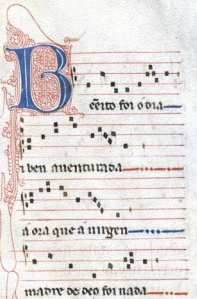 B
eẽito foi o dia
i ben auenturada
a ora que a uirgen
madre de deo foi nada